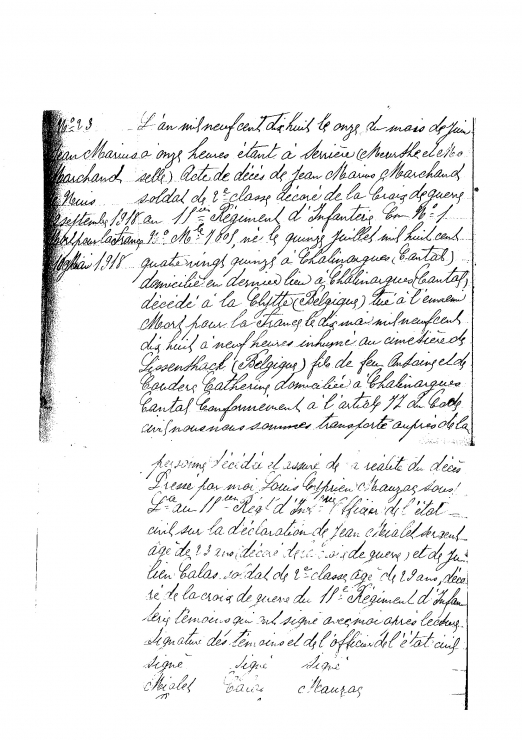 N° 23
Jean Marius
Marchand
9 septembre 1918
Mort pour la France
10 Mai 1918
L'an mil neuf cent dix huit le onze du mois de Juin
à onze heures étant à Serrière (Meurthe et Mo
selle) Acte de décès de Jean Marius Marchand
soldat de 2e classe décoré de la Croix de guerre
au 11e Régiment d'Infanterie Con N° 1
N° Mle 7805, né le quinze Juillet mil huit cent
quatre vingt quinze à Chalinargues (Cantal)
domicilié en dernier lieu à Chalinargues (Cantal)
décédé à la Clytte (Belgique) tué à l'ennemi
Mort pour la France le dix mai mil neuf cent
dix huit à neuf heures inhumé au cimetière de
Lissenthoek (Belgique) fils de feu Antoine et de
Couderc Catherine domiciliée à Chalinargues
Cantal Conformément à l'article 77 du Code
civil nous nous sommes transporté auprès de la
personne décédée et assuré de la réalité du décès
Dressé par moi Louis Cyprien Mauzac sous
Lt au 11e Regt d'Inf. Officier de l'état
civil sur la déclaration de Jean Mialet sergent
âgé de 23 ans, décoré de la croix de guerre, et de Ju
lien Calas soldat de 2e classe âgé de 29 ans, déco
ré de la croix de guerre du 11e Régiment d'Infan
terie témoins qui ont signé avec moi après lecture
signature des témoins et de l'officier de l'état civil
signé signé signé
Mialet Calas Mauzac